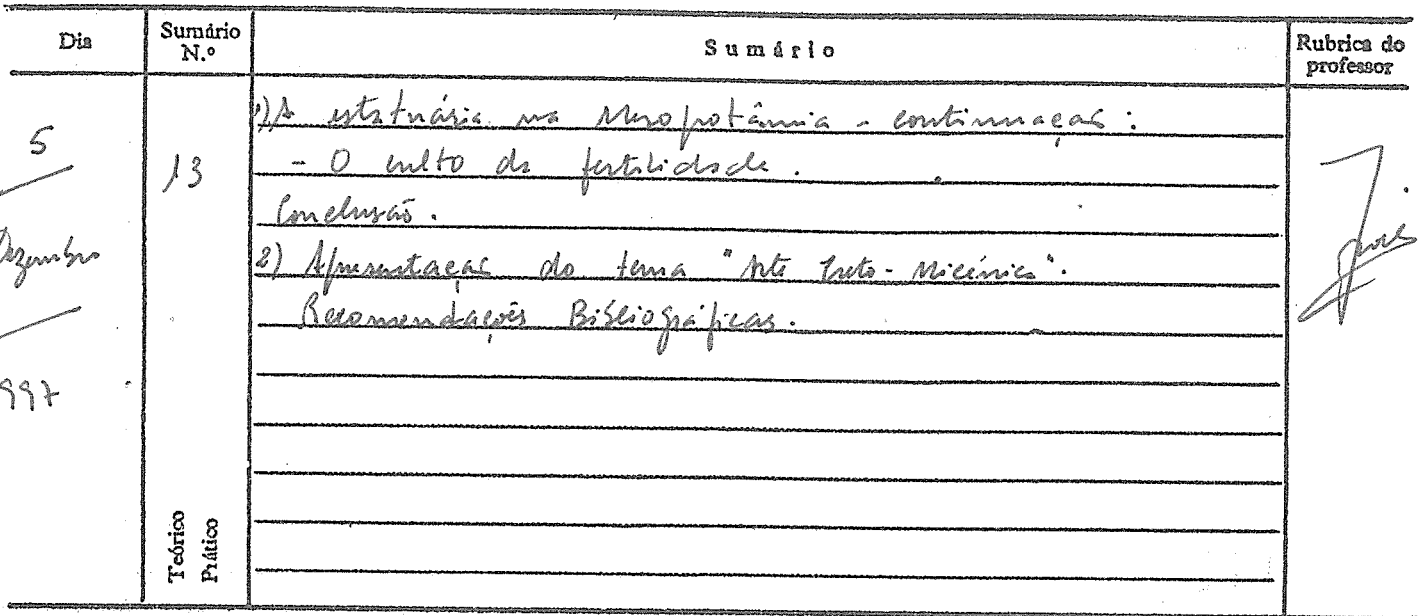 Dia
Sumário N.º
Sumário
Rubrica do professor
5
Dezembro
997
13
1) A estatuária na Mesopotâmia - continuação:
- O culto da fertilidade.
Conclusão.
2) Apresentação do tema "Arte Creto-Micénica".
Recomendações Bibliográficas.
Teórico
Prático